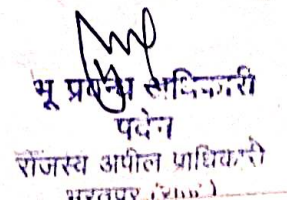 भू प्रबन्ध अधिकारी
पदेन
राजस्व अपील प्राधिकारी
भरतपुर (राज०)